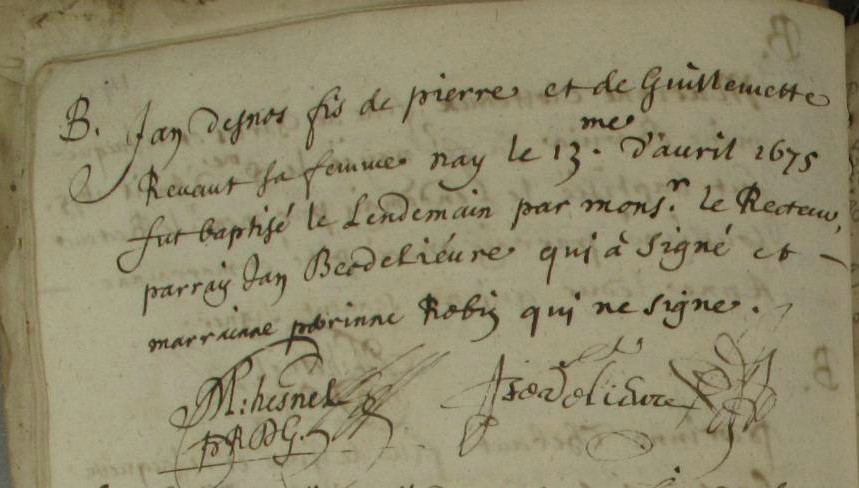 B. Jan Desnos fis de pierre et de Guillemette
Revaut sa femme nay le 13.me d'auril 1675
fut baptisé le Lendemain par mons.r le Recteur,
parrain Jan Becdeliéure qui à signé et
marrainne perinne Robin qui ne signe.
M: hesnel J becdelieure
PRDG.